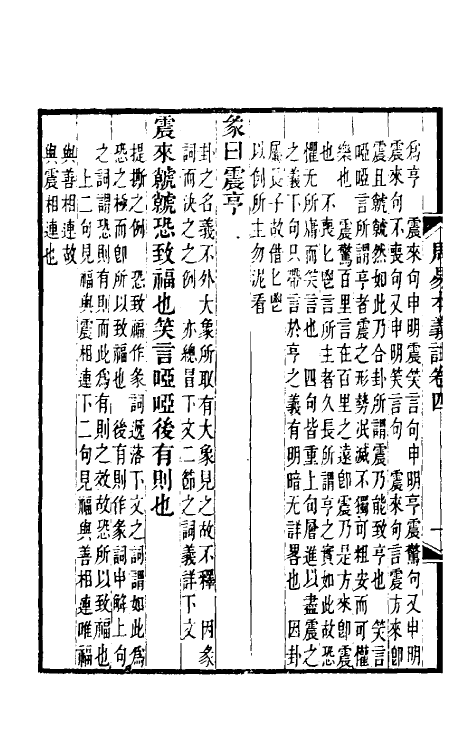 周易本義註卷四
一
為亨　震來句申明震笑言句申明亨震驚句又申明
震來句不喪句又申明笑言句　震來句言震方來即
震且虩虩然如此乃合卦所謂震乃能致亨也　笑言
啞啞言所謂亨者震之後形勢泯滅不獨可粗安而可懽
樂也　震驚百里言在百里之遠即震乃是方來即震
也　不喪匕鬯言所主者久長所謂亨之實如此故恐
懼无所膚而笑言也　四句皆重上句層進以盡震之
之義下句只帶言於亨之義有明暗无詳畧也　因卦
屬長子故借匕鬯
以例所主勿泥看
彖曰震亨
卦之名義不外大象所取有大象見之故不釋　因彖
詞而決之之例　亦總冒下文二節之詞義詳下文
震來虩虩恐致福也笑言啞啞後有則也
提撕之例　恐致福作彖詞遞落下文之詞謂如此為
恐之極而卽所以致福也　後有則作彖詞申解上句
之詞謂恐則有則而此為有則之效故恐所以致福也
上二句見福與震相連下二句見福與善相連唯福
與善相連故
與震相連也